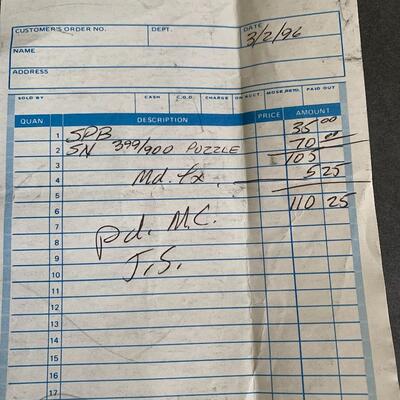 CUSTOMER'S ORDER NO. DEPT. DATE 3/2/96
NAME
ADDRESS
SOLD BY CASH C.O.D. CHARGE ON ACCT. MDSE. RETD. PAID OUT
QUAN. DESCRIPTION PRICE AMOUNT
1 SPB 35 00
2 SN 399/900 PUZZLE 70 00
3 105
4 Md. tx 5 25
5 110 25
6 pd. M.C.
7
8 J.S.
9
10
11
12
13
14
15
16
17